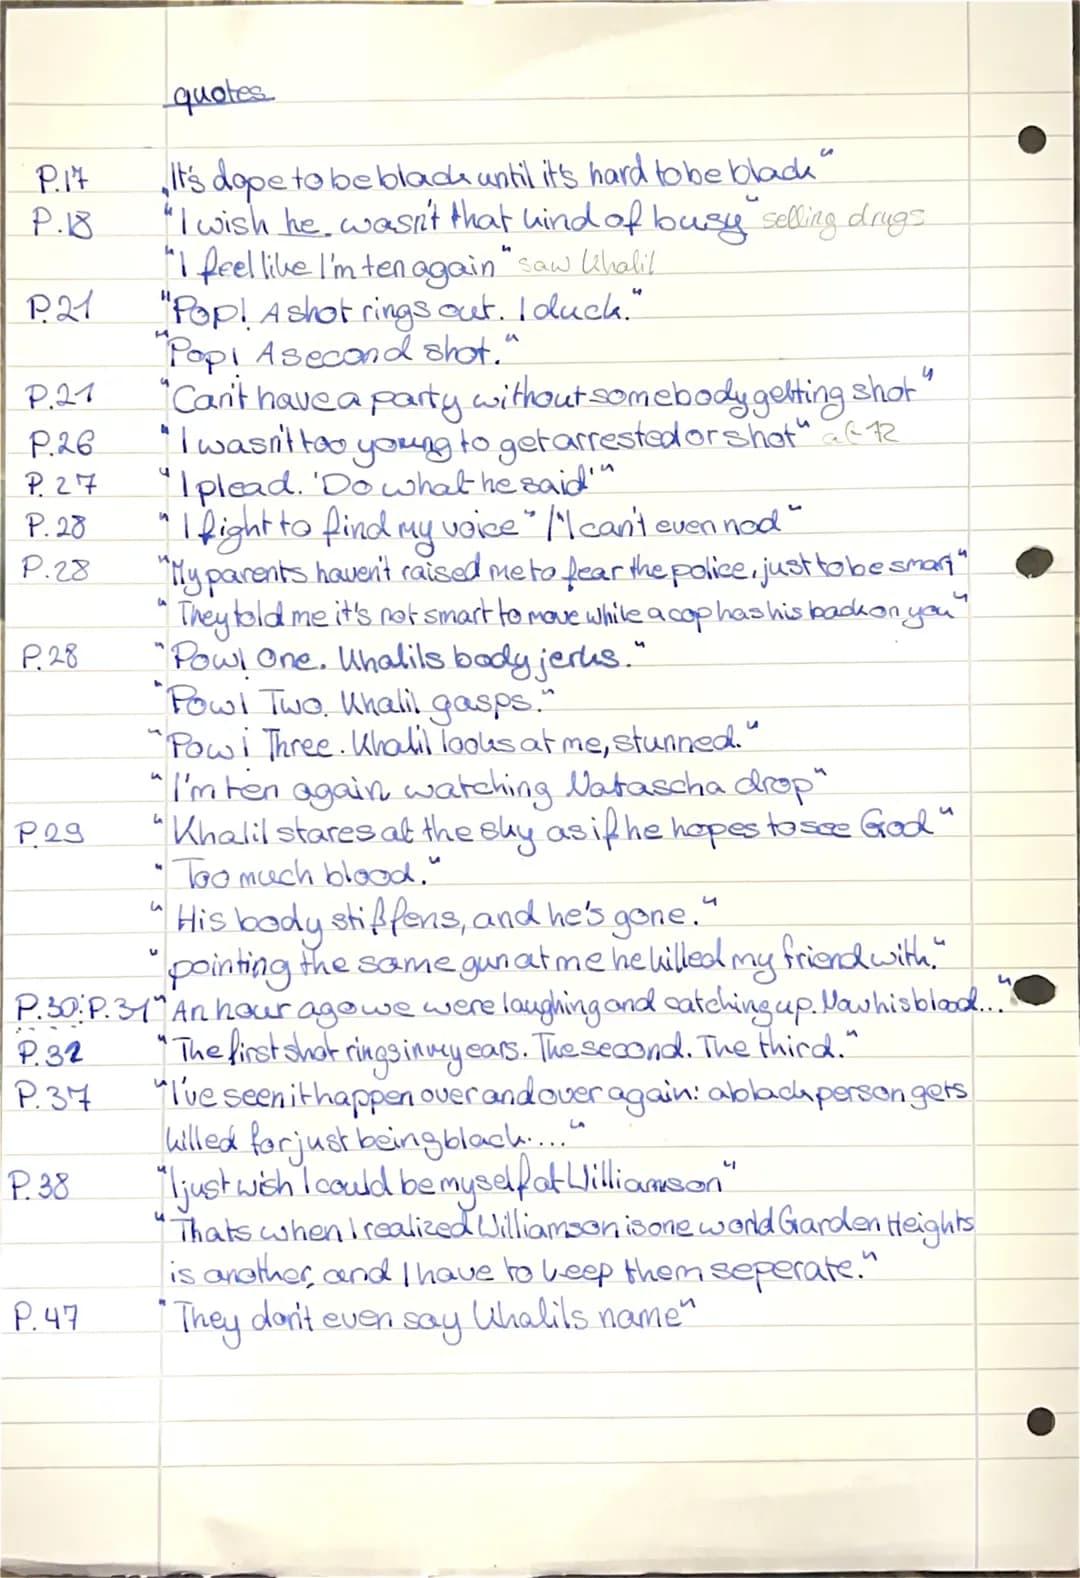 quotes
P.17 „It's dope to be black until it's hard to be black"
P.18 "I wish he wasn't that kind of busy" selling drugs
"I feel like I'm ten again" saw Khalil
P.21 "Pop! A shot rings out. I duck."
"Pop! A second shot."
P.21 "Can't have a party without somebody getting shot"
P.26 "I wasn't too young to get arrested or shot" at 12
P. 27 "I plead. 'Do what he said'"
P. 28 "I fight to find my voice" / "I can't even nod"
P.28 "My parents haven't raised me to fear the police, just to be smart"
"They told me it's not smart to move while a cop has his back on you"
P. 28 "Pow! One. Khalils body jerks."
"Pow! Two. Khalil gasps."
"Pow! Three. Khalil looks at me, stunned."
"I'm ten again, watching Natascha drop"
P.29 "Khalil stares at the sky as if he hopes to see God"
"Too much blood."
"His body stiffens, and he's gone."
"pointing the same gun at me he killed my friend with."
P.30: P.31 "An hour ago we were laughing and catching up. Now his blood..."
P.32 "The first shot rings in my ears. The second. The third."
P.37 "I've seen it happen over and over again: a black person gets
killed for just being black...."
P. 38 "I just wish I could be myself at Williamson"
"Thats when I realized Williamson is one world Garden Heights
is another, and I have to keep them seperate."
P. 47 "They don't even say Khalils name"